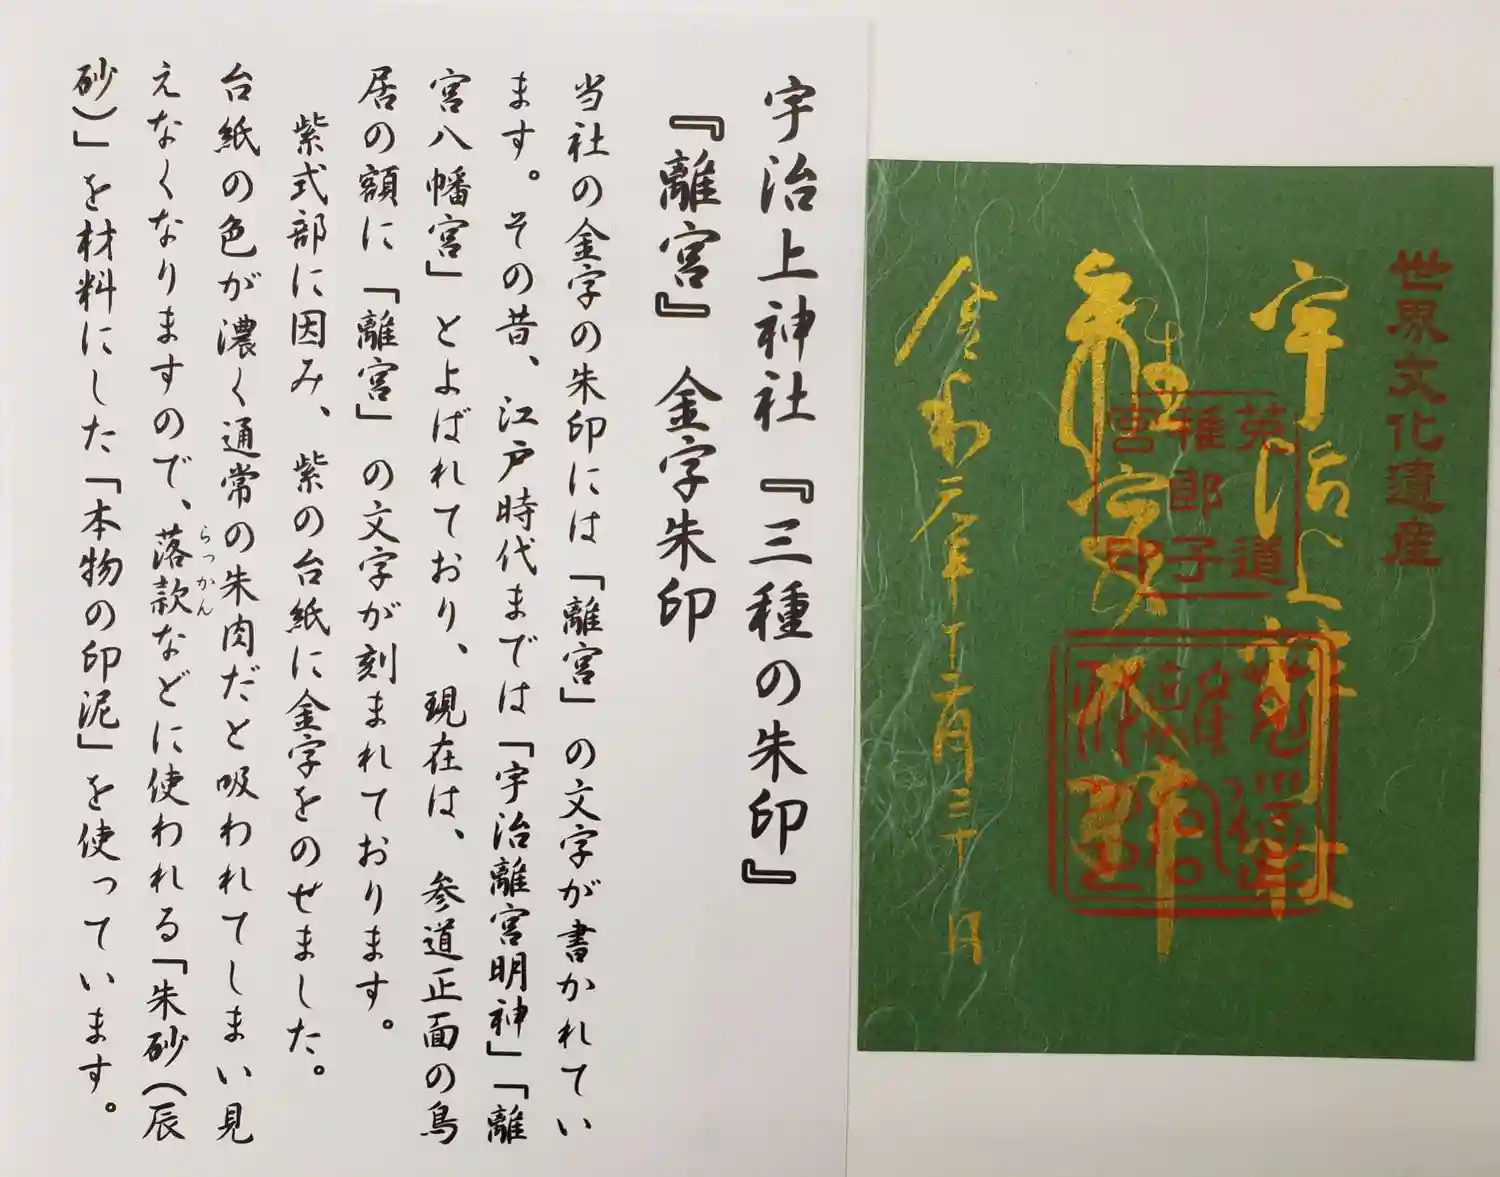 世界文化遺産
宇治上神社
菟道
稚郎子
宮印
令和元年十二月三十日
宇治上神社『三種の朱印』
『離宮』金字朱印
当社の金字の朱印には「離宮」の文字が書かれてい
ます。その昔、江戸時代までは「宇治離宮明神」「離
宮八幡宮」とよばれており、現在は、参道正面の鳥
居の額に「離宮」の文字が刻まれております。
紫式部に因み、紫の台紙に金字をのせました。
台紙の色が濃く通常の朱肉だと吸われてしまい見
えなくなりますので、落款などに使われる「朱砂(辰
らっかん
砂)」を材料にした「本物の印泥」を使っています。